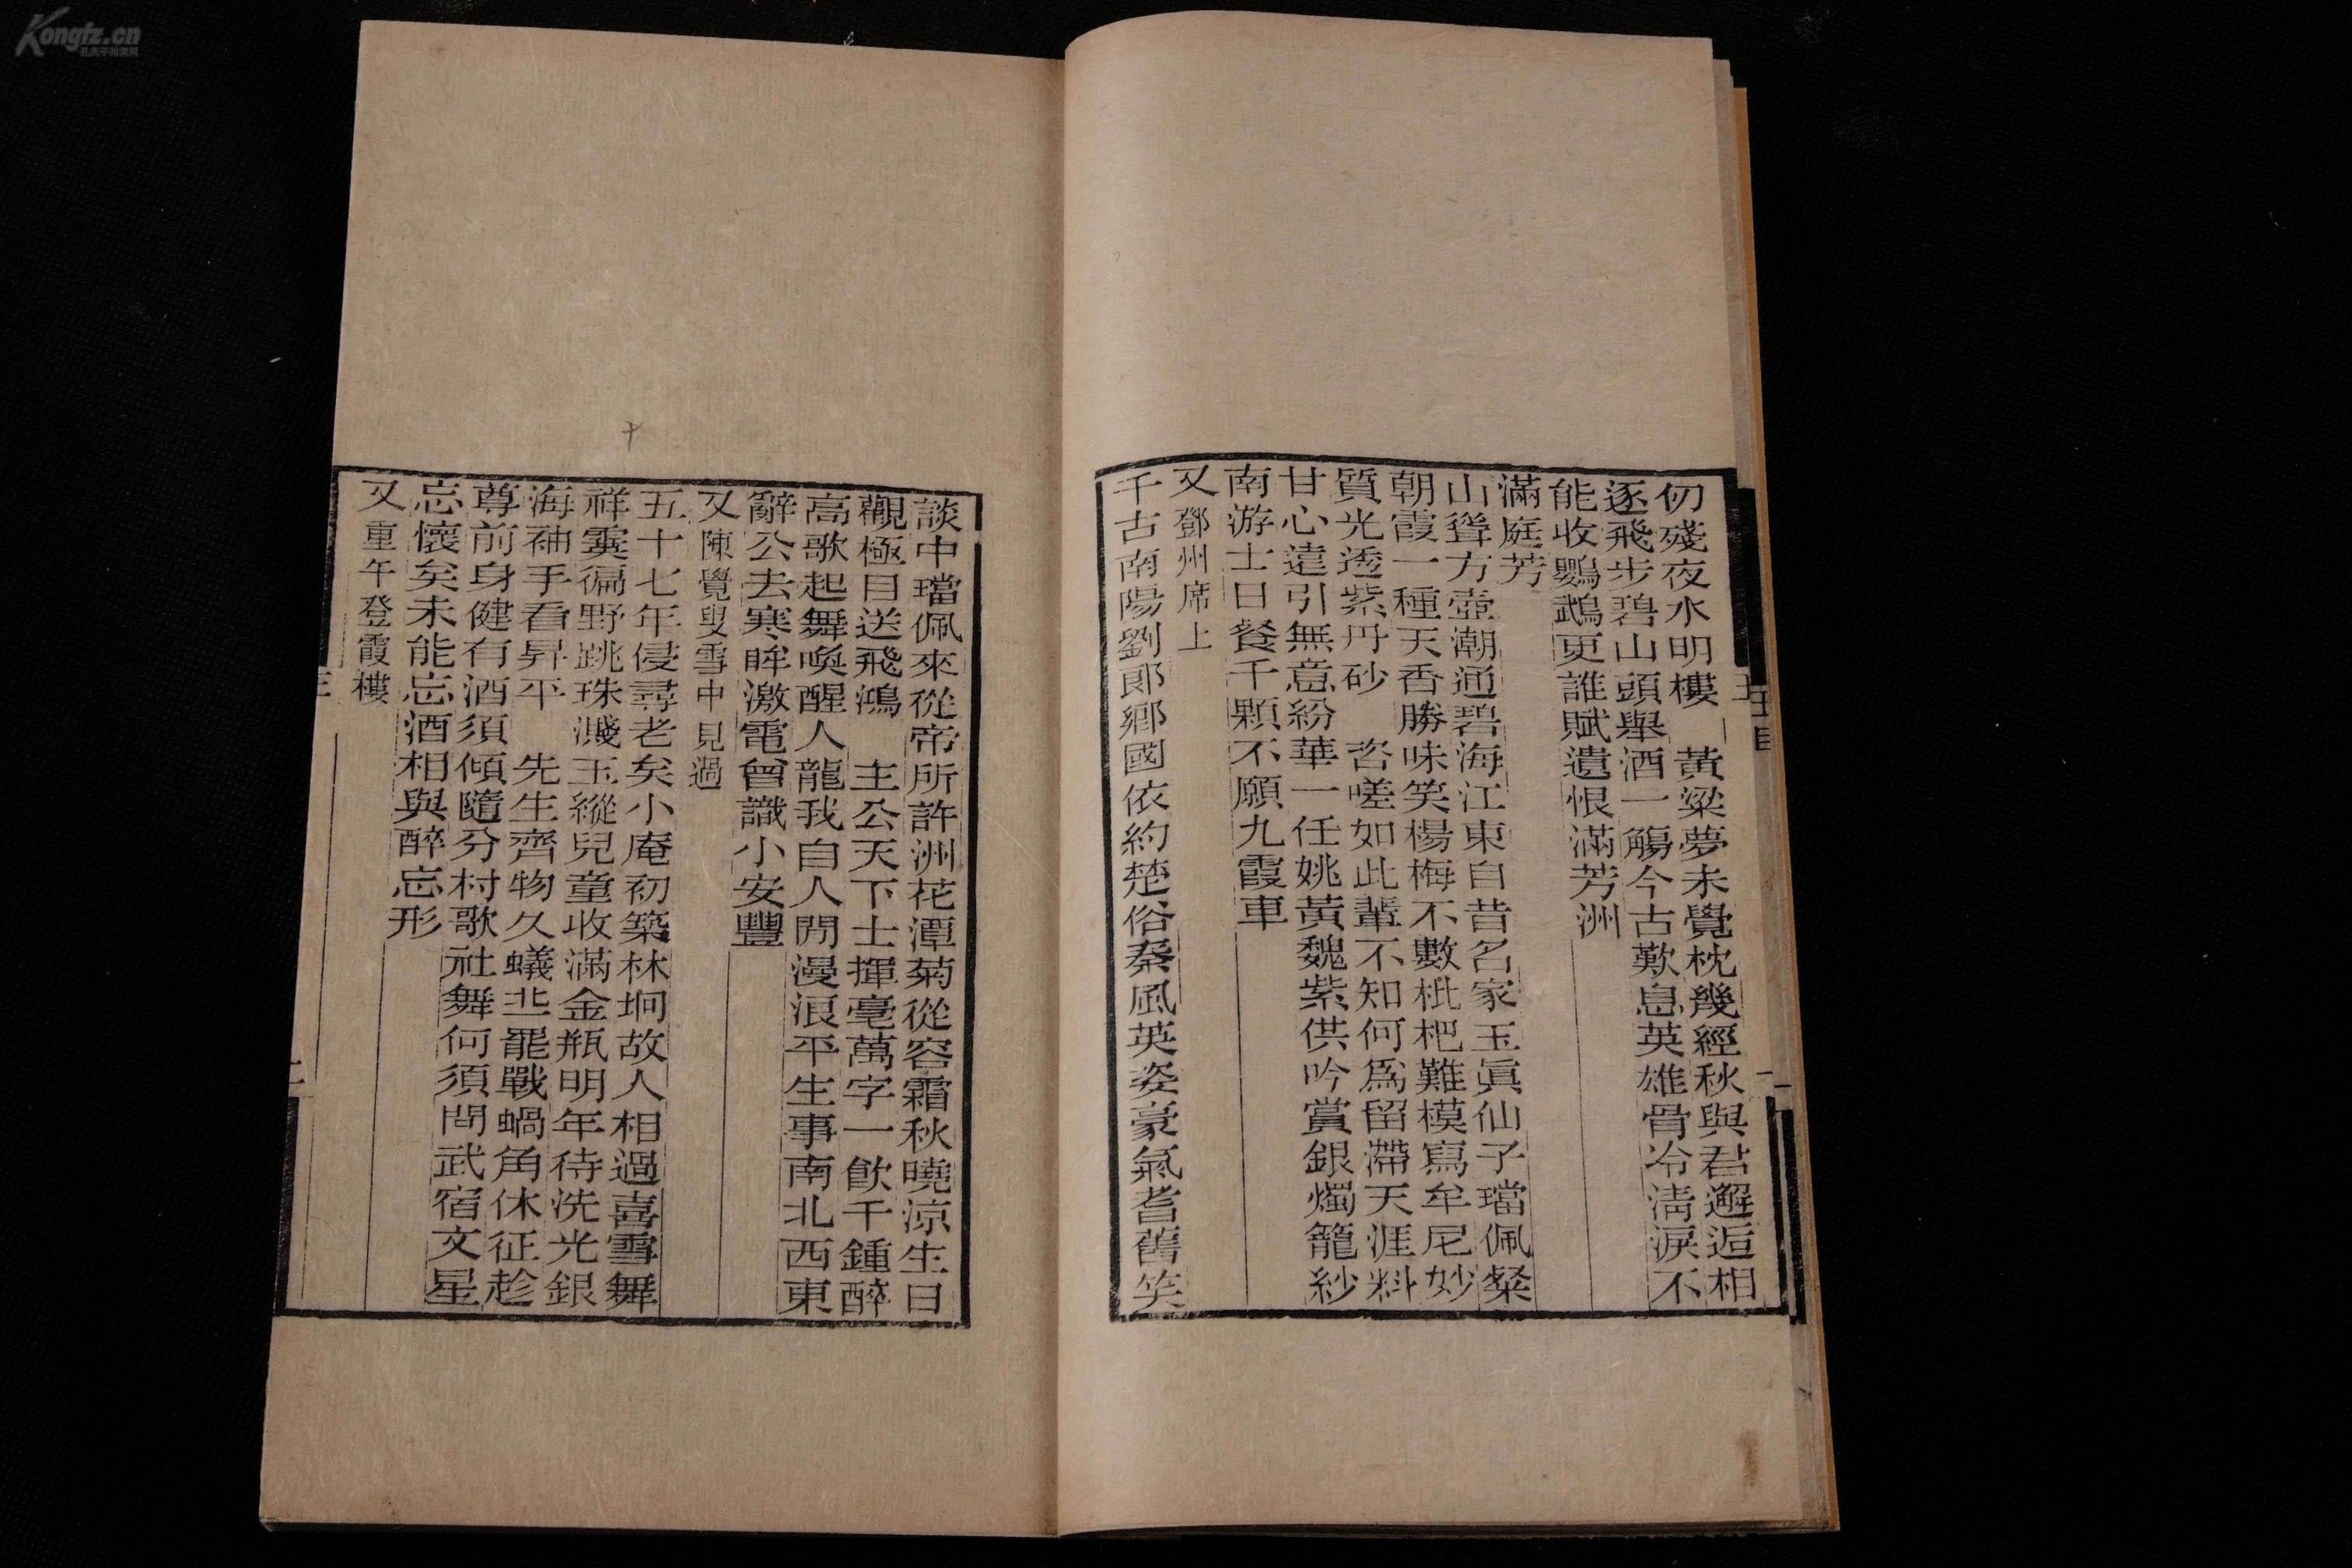 Kongfz.cn
仞殘夜水明樓　黃粱夢未覺枕幾經秋與君邂逅相
逐飛步碧山頭舉酒一觴今古歎息英雄骨冷淸淚不
能收鸚鵡更誰賦遺恨滿芳洲
滿庭芳
山聳方壺潮通碧海江東自昔名家玉眞仙子璫佩粲
朝霞一種天香勝味笑楊梅不數枇杷難模寫牟尼妙
質光透紫丹砂　咨嗟如此輩不知何爲留滯天涯料
甘心遠引無意紛華一任姚黃魏紫供吟賞銀燭籠紗
南游士日餐千顆不願九霞車
又鄧州席上
千古南陽劉郞鄉國依約楚俗秦風英姿豪氣耆舊笑
談中璫佩來從帝所許洲花潭菊從容霜秋曉涼生日
觀極目送飛鴻　主公天下士揮毫萬字一飮千鍾醉
高歌起舞喚醒人龍我自人閒漫浪平生事南北西東
辭公去寒眸激電曾識小安豐
又陳覺叟雪中見過
五十七年侵尋老矣小庵初築林坰故人相過喜雪舞
祥霙徧野跳珠濺玉縱兒童收滿金瓶明年待洗光銀
海袖手看昇平　先生齊物久蟻丠罷戰蝸角休征趁
尊前身健有酒須傾隨分村歌社舞何須問武宿文星
忘懷矣未能忘酒相與醉忘形
又重午登霞樓